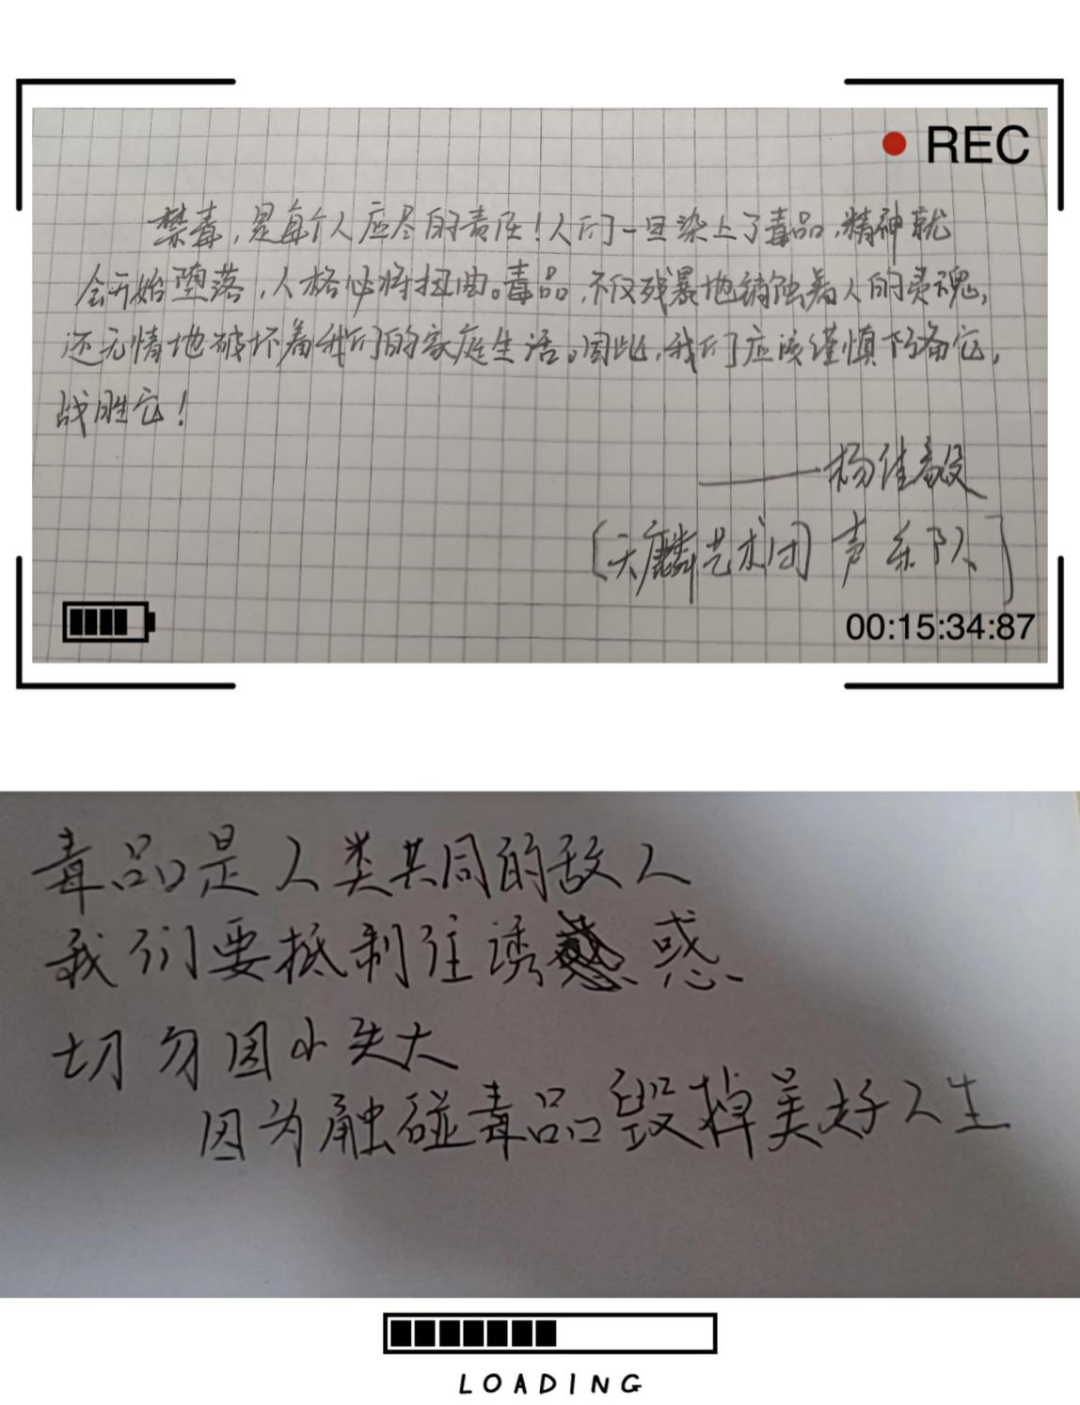 REC
禁毒，是每个人应尽的责任！人们一旦染上了毒品，精神就
会开始堕落，人格必将扭曲。毒品，不仅残暴地销蚀着人的灵魂，
还无情地破坏着我们的家庭生活。因此，我们应该谨慎防备它，
战胜它！
——杨佳毅
[天麟艺术团 声乐队]
00:15:34:87
毒品是人类共同的敌人
我们要抵制住诱惑
切勿因小失大
因为触碰毒品毁掉美好人生
LOADING